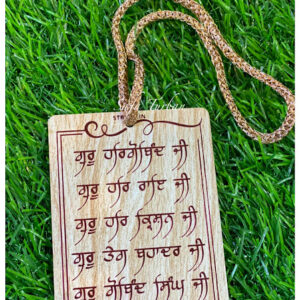 ਗੁਰੂ ਹਰਿਗੋਬਿੰਦ ਜੀ
ਗੁਰੂ ਹਰਿ ਰਾਇ ਜੀ
ਗੁਰੂ ਹਰਿ ਕ੍ਰਿਸ਼ਨ ਜੀ
ਗੁਰੂ ਤੇਗ ਬਹਾਦਰ ਜੀ
ਗੁਰੂ ਗੋਬਿੰਦ ਸਿੰਘ ਜੀ